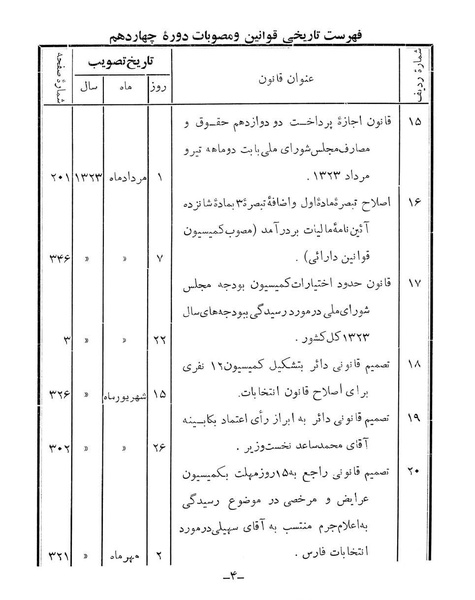 فهرست تاریخی قوانین ومصوبات دورهٔ چهاردهم
شمارهٔ ردیف
عنوان قانون
تاریخ تصویب
روز
ماه
سال
شمارهٔ صفحه
۱۵ قانون اجازهٔ پرداخت دو دوازدهم حقوق و
مصارف مجلس شورای ملی بابت دوماهه تیر و
مرداد ۱۳۲۳ . ۱ مردادماه ۱۳۲۳ ۲۰۱
۱۶ اصلاح تبصرهٔ مادهٔ اول و اضافهٔ تبصرهٔ ۳ بمادهٔ شانزده
آئین نامهٔ مالیات بر درآمد (مصوب کمیسیون
قوانین دارائی) . ۷ » » ۳۴۶
۱۷ قانون حدود اختیارات کمیسیون بودجه مجلس
شورای ملی درمورد رسیدگی ببودجه‌های سال
۱۳۲۳ کل کشور . ۲۲ » » ۳
۱۸ تصمیم قانونی دائر بتشکیل کمیسیون ۱۲ نفری
برای اصلاح قانون انتخابات. ۱۵ شهریورماه » ۳۲۶
۱۹ تصمیم قانونی دائر به ابراز رأی اعتماد بکابینه
آقای محمدساعد نخست‌وزیر . ۲۶ » » ۳۰۲
۲۰ تصمیم قانونی راجع به ۱۵ روز مهلت بکمیسیون
عرایض و مرخصی در موضوع رسیدگی
به اعلام جرم منتسب به آقای سهیلی درمورد
انتخابات فارس . ۲ مهرماه » ۳۲۱
–۴–